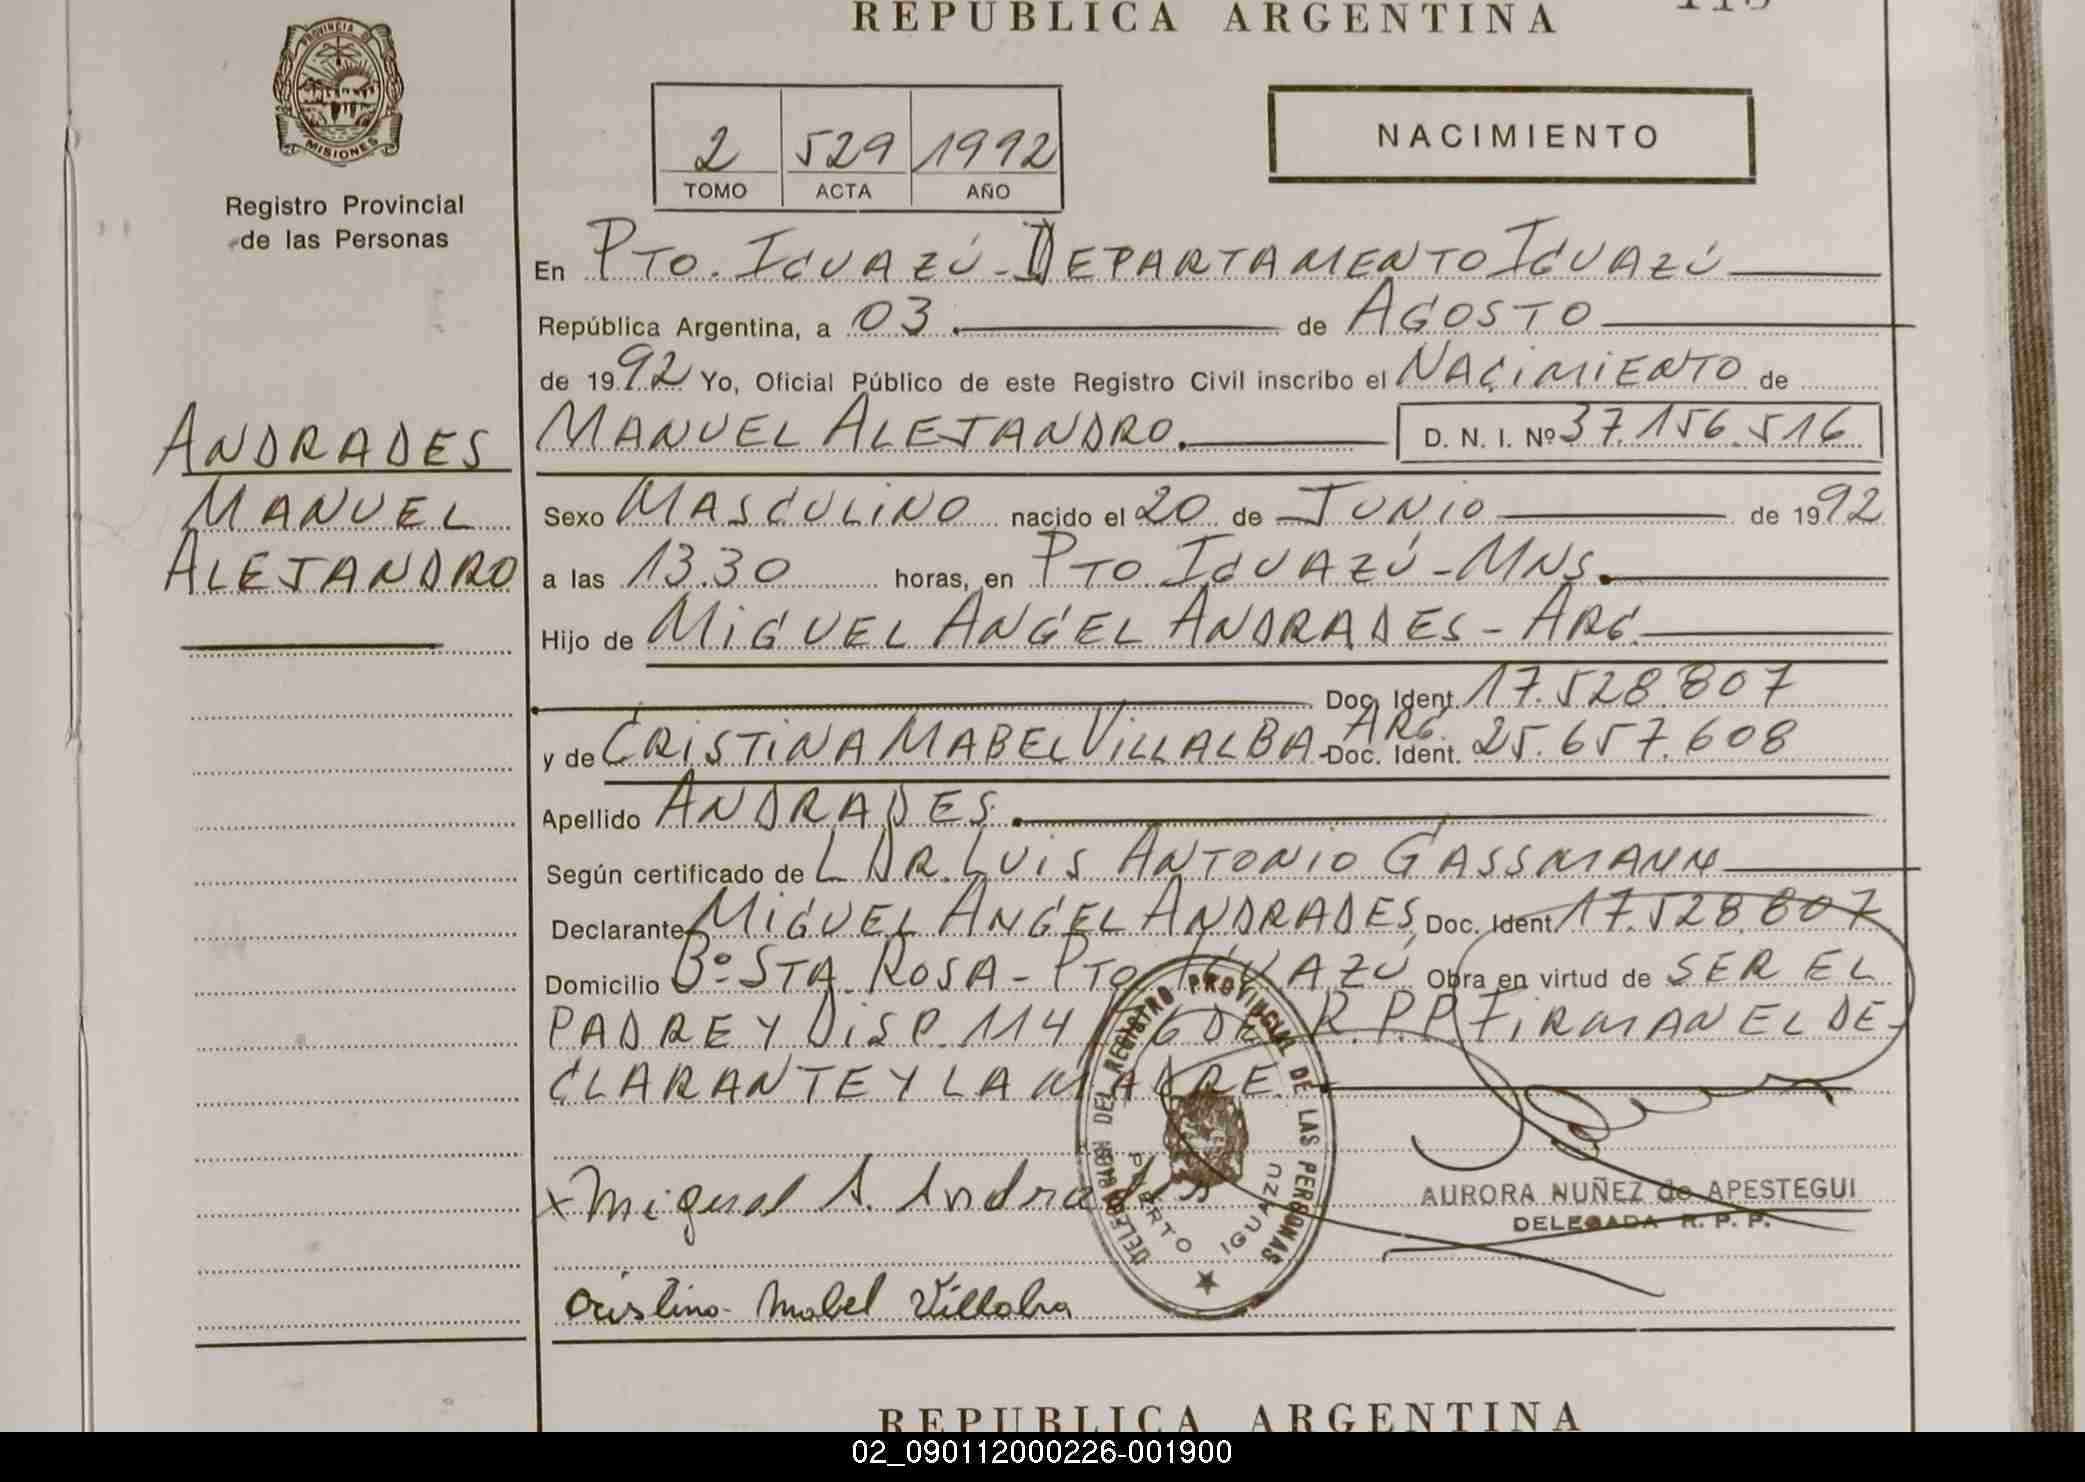 REPUBLICA ARGENTINA
PROVINCIA DE
MISIONES
Registro Provincial
de las Personas
2 529 1992
TOMO ACTA AÑO
NACIMIENTO
En PTO. IGUAZÚ - DEPARTAMENTO IGUAZÚ
República Argentina, a 03. de AGOSTO
de 1992 Yo, Oficial Público de este Registro Civil inscribo el NACIMIENTO de
MANUEL ALEJANDRO. D. N. I. Nº 37.156.516
ANDRADES
MANUEL
ALEJANDRO
Sexo MASCULINO nacido el 20 de JUNIO de 1992
a las 13.30 horas, en PTO IGUAZÚ - MNS.
Hijo de MIGUEL ANGEL ANDRADES - ARG.
Doc. Ident. 17.528.807
y de CRISTINA MABEL VILLALBA - ARG. Doc. Ident. 25.657.608
Apellido ANDRADES.
Según certificado de L DR. LUIS ANTONIO GASSMANN
Declarante MIGUEL ANGEL ANDRADES Doc. Ident. 17.528.807
Domicilio Bº STA. ROSA - PTO IGUAZÚ Obra en virtud de SER EL
PADRE Y DISP. 114 R.P.P. FIRMAN EL DE-
CLARANTE Y LA MADRE.
DELEGACION DEL REGISTRO PROVINCIAL DE LAS PERSONAS
PUERTO IGUAZU
x Miguel A. Andrades
AURORA NUÑEZ de APESTEGUI
DELEGADA R. P. P.
Cristina Mabel Villalba
REPUBLICA ARGENTINA
02_090112000226-001900